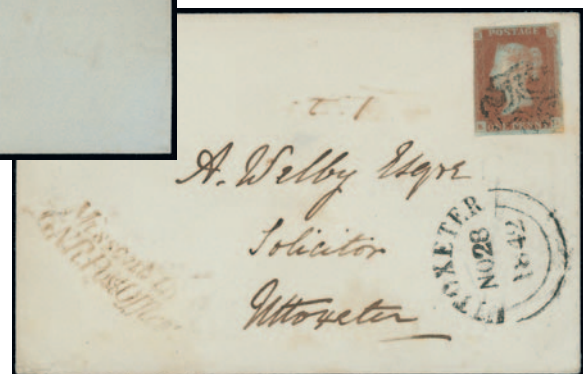 POSTAGE
A. Welby Esqre
Solicitor
Uttoxeter
UTTOXETER
NO 28
1842
Missent to